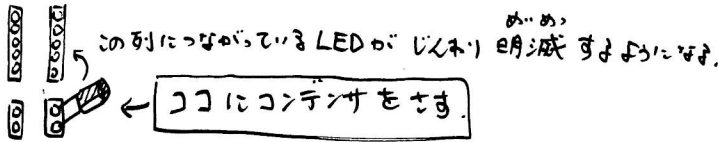 めいめつ
この列につながっているLEDが じんわり 明滅 するようになる.
ココにコンデンサをさす.